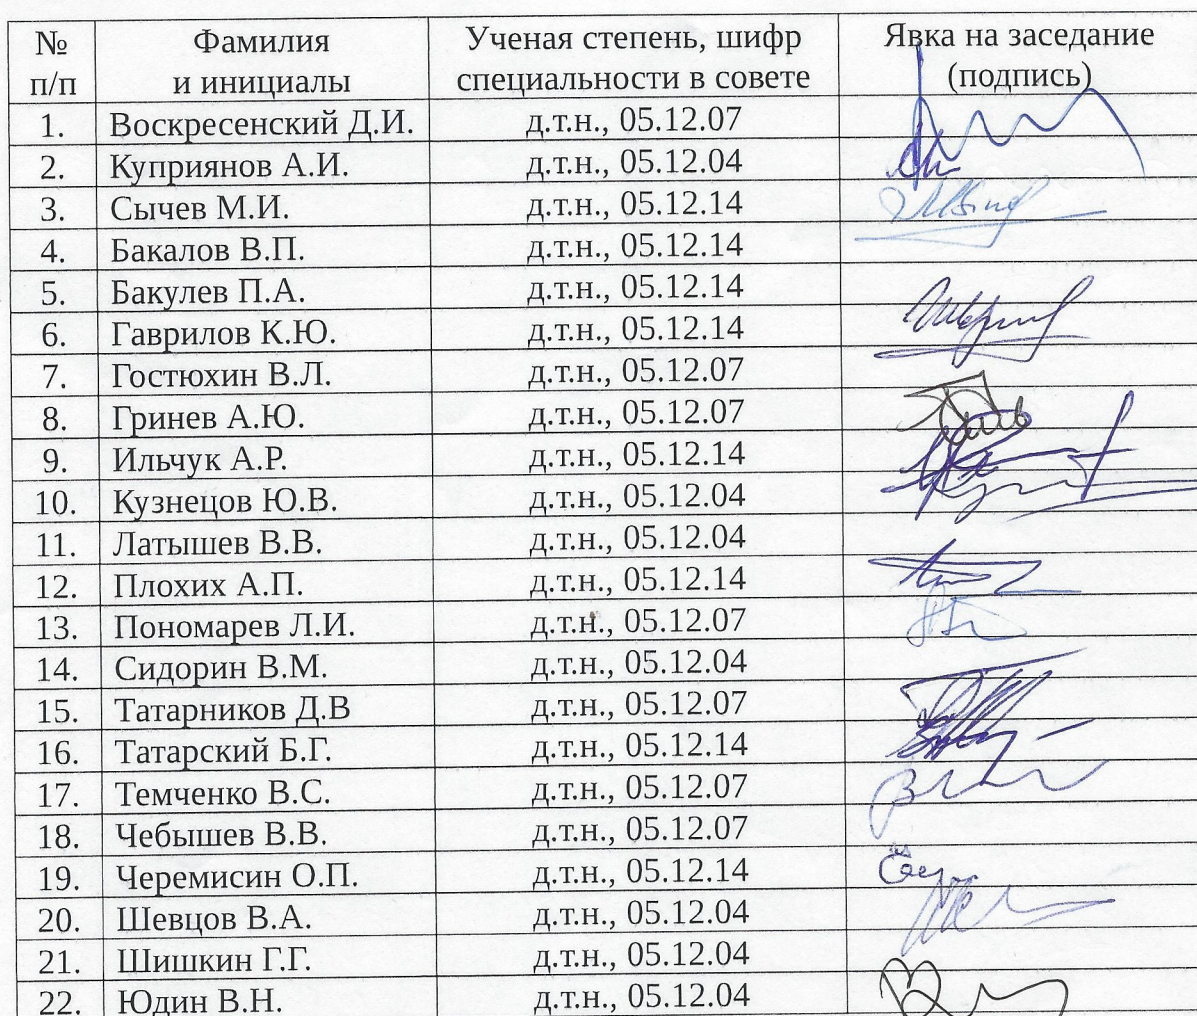 № п/п Фамилия и инициалы Ученая степень, шифр специальности в совете Явка на заседание (подпись)
1. Воскресенский Д.И. д.т.н., 05.12.07
2. Куприянов А.И. д.т.н., 05.12.04
3. Сычев М.И. д.т.н., 05.12.14
4. Бакалов В.П. д.т.н., 05.12.14
5. Бакулев П.А. д.т.н., 05.12.14
6. Гаврилов К.Ю. д.т.н., 05.12.14
7. Гостюхин В.Л. д.т.н., 05.12.07
8. Гринев А.Ю. д.т.н., 05.12.07
9. Ильчук А.Р. д.т.н., 05.12.14
10. Кузнецов Ю.В. д.т.н., 05.12.04
11. Латышев В.В. д.т.н., 05.12.04
12. Плохих А.П. д.т.н., 05.12.14
13. Пономарев Л.И. д.т.н., 05.12.07
14. Сидорин В.М. д.т.н., 05.12.04
15. Татарников Д.В д.т.н., 05.12.07
16. Татарский Б.Г. д.т.н., 05.12.14
17. Темченко В.С. д.т.н., 05.12.07
18. Чебышев В.В. д.т.н., 05.12.07
19. Черемисин О.П. д.т.н., 05.12.14
20. Шевцов В.А. д.т.н., 05.12.04
21. Шишкин Г.Г. д.т.н., 05.12.04
22. Юдин В.Н. д.т.н., 05.12.04